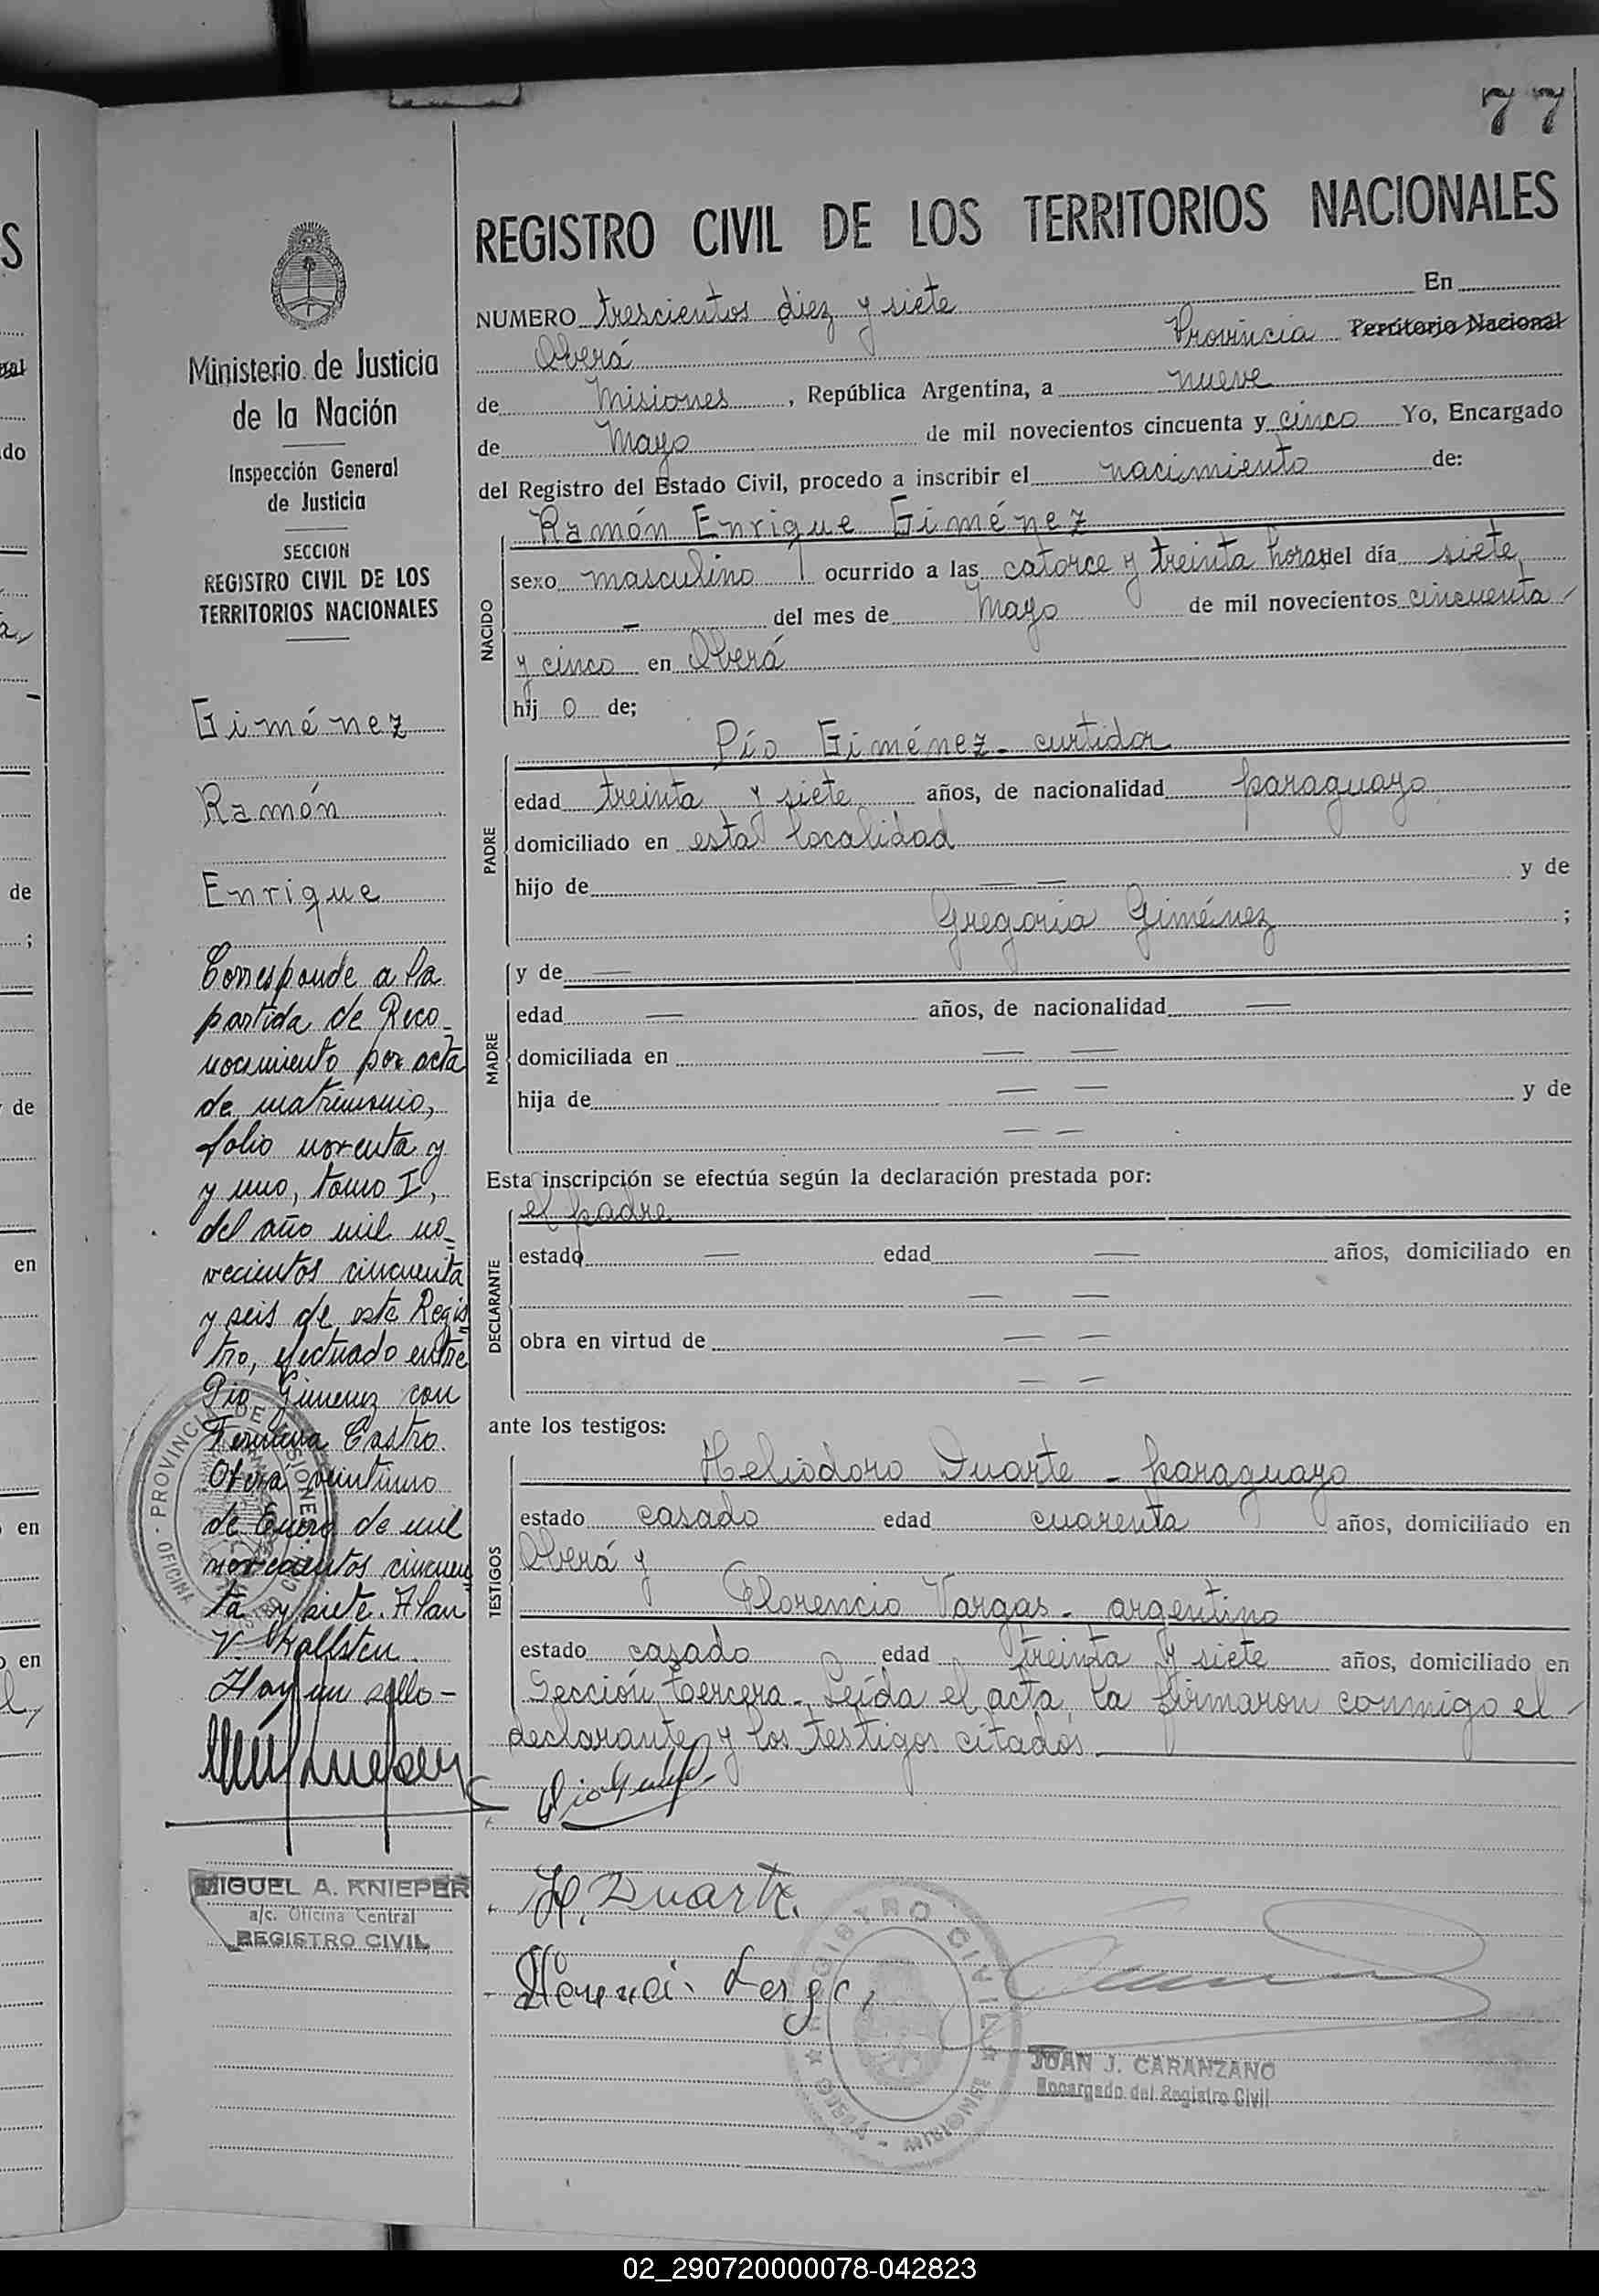 77
REGISTRO CIVIL DE LOS TERRITORIOS NACIONALES
NUMERO trescientos diez y siete En
Oberá Provincia Territorio Nacional
de Misiones, República Argentina, a nueve
de Mayo de mil novecientos cincuenta y cinco Yo, Encargado
del Registro del Estado Civil, procedo a inscribir el nacimiento de:
NACIDO
Ramón Enrique Giménez
sexo masculino ocurrido a las catorce y treinta horas del día siete
— del mes de Mayo de mil novecientos cincuenta
y cinco en Oberá
hij o de;
PADRE
Pío Giménez - curtidor
edad treinta y siete años, de nacionalidad paraguayo
domiciliado en esta localidad
hijo de — — y de
Gregoria Giménez ;
MADRE
y de —
edad — años, de nacionalidad —
domiciliada en — —
hija de — — y de
— —
Esta inscripción se efectúa según la declaración prestada por:
DECLARANTE
el padre
estado — edad — años, domiciliado en
— —
obra en virtud de — —
— —
ante los testigos:
TESTIGOS
Heliodoro Duarte - paraguayo
estado casado edad cuarenta años, domiciliado en
Oberá y
Florencio Vargas - argentino
estado casado edad treinta y siete años, domiciliado en
Sección tercera - Leída el acta, la firmaron conmigo el
declarante y los testigos citados.
H. Duarte.
REGISTRO CIVIL
MISIONES
JUAN J. CARANZANO
Encargado del Registro Civil
Ministerio de Justicia
de la Nación
Inspección General
de Justicia
SECCION
REGISTRO CIVIL DE LOS
TERRITORIOS NACIONALES
Giménez
Ramón
Enrique
Corresponde a la
partida de Reco-
nocimiento por acta
de matrimonio,
folio noventa y
y uno, tomo I,
del año mil no-
vecientos cincuenta
y seis de este Regis
tro, efectuado entre
Pio Gimenez con
Castro.
Obera veintiuno
de Enero de mil
novecientos cincuen
ta y siete. Alan
V. Kallsten.
Hay un sello -
PROVINCIA DE MISIONES
OFICINA
MIGUEL A. KNIEPER
a/c. Oficina Central
REGISTRO CIVIL
S
do
de
;
de
en
en
en
02_290720000078-042823